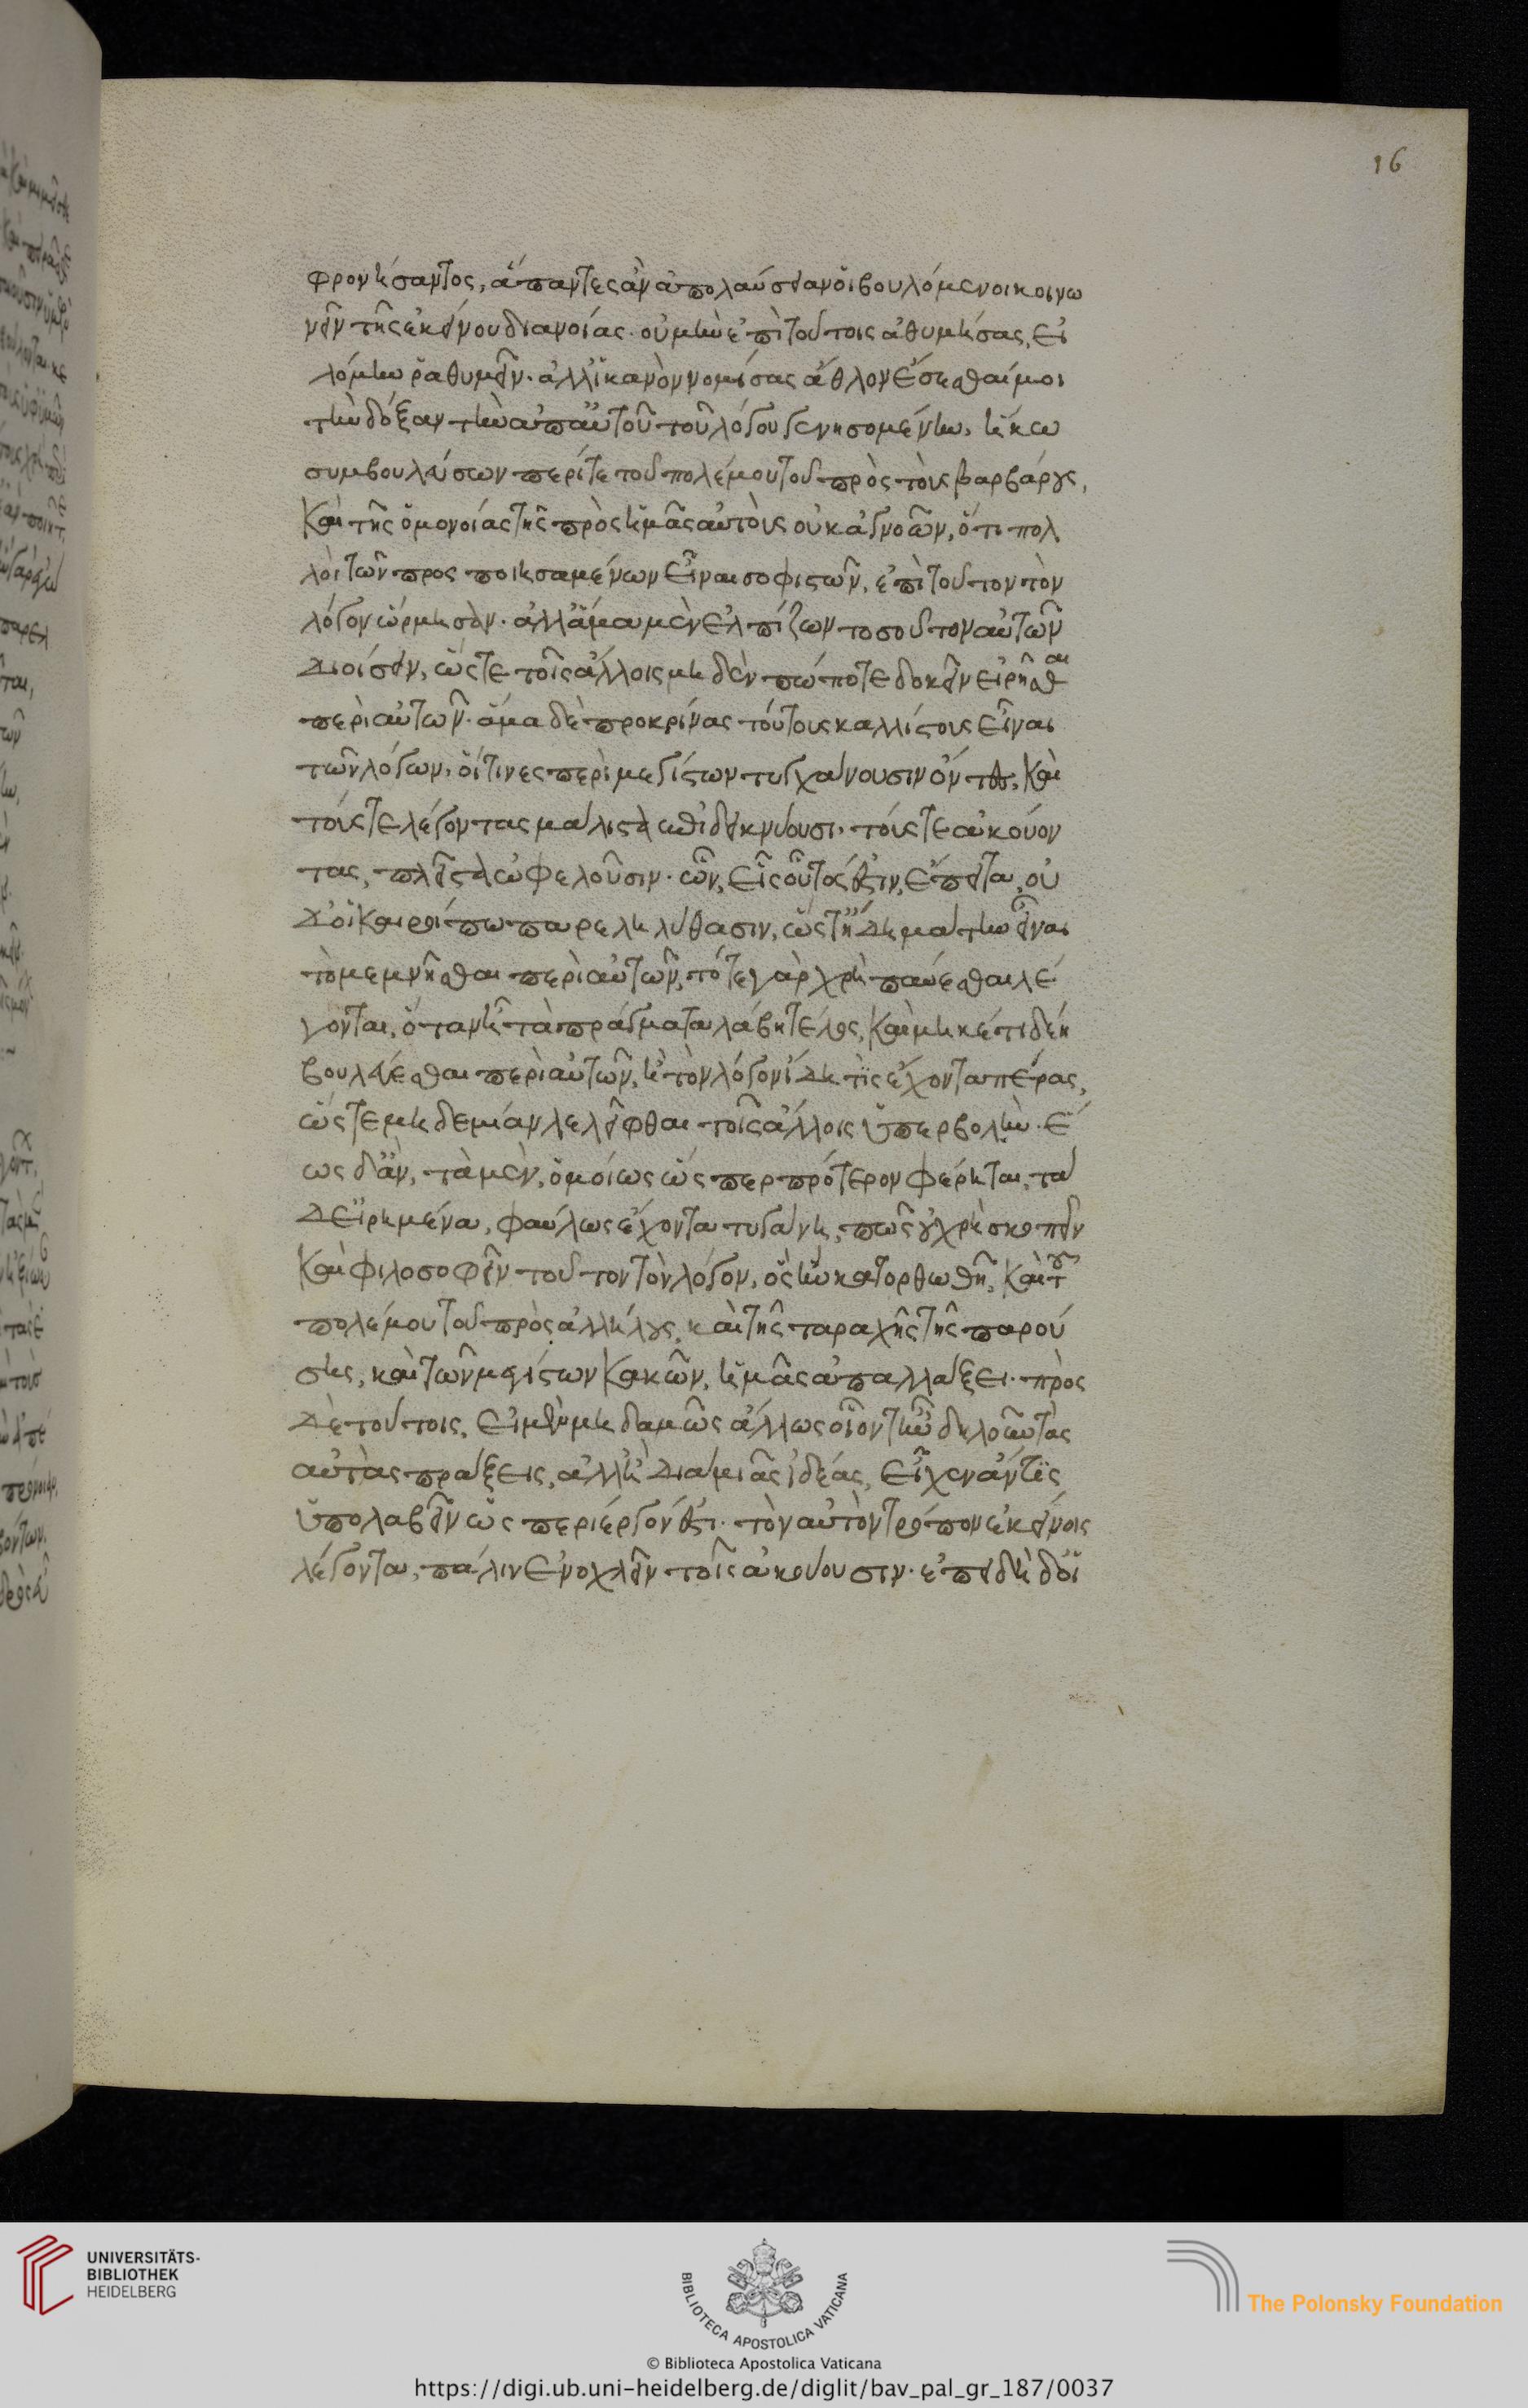 16
φρονήσαντος, ἅπαντες ἂν ἀπολαύσειαν ὁι βουλόμενοι κοινω
νεῖν τῆς ἐκείνου διανοίας. οὐ μὴν ἐπὶ τούτοις ἀθυμήσας, εἱ
λόμην ῥᾳθυμεῖν. ἀλλ ἱκανὸν νομίσας ἆθλον ἔσεσθαί μοι
τὴν δόξαν τὴν ἀπ αὐτοῦ τοῦ λόγου γενησομένην, ἥκω
συμβουλεύσων περί τε τοῦ πολέμου τοῦ πρὸς τοὺς βαρβάρους,
καὶ τῆς ὁμονοίας τῆς πρὸς ἡμᾶς αὐτοὺς οὐκ ἀγνοῶν, ὅτι πολ
λοὶ τῶν προσποιησαμένων εἶναι σοφιστῶν, ἐπὶ τοῦτον τὸν
λόγον ὥρμησαν. ἀλλ ἅμα μὲν ἐλπίζων τοσοῦτον αὐτῶν
διοίσειν, ὥστε τοῖς ἄλλοις μηδὲν πώποτε δοκεῖν εἰρῆσθαι
περὶ αὐτῶν. ἅμα δὲ προκρίνας τούτους καλλίστους εἶναι
τῶν λόγων, οἵτινες περὶ μεγίστων τυγχάνουσιν ὄντες, καὶ
τούς τε λέγοντας μάλιστα ἐπιδεικνύουσι, τούς τε ἀκούον
τας, πλεῖστα ὠφελοῦσιν. ὧν, εἷς οὗτός ἐστιν, ἔπειτα, οὐ
δ οἱ καιροί πω παρεληλύθασιν, ὥστ ἤδη μάτην εἶναι
τὸ μεμνῆσθαι περὶ αὐτῶν, τότε γὰρ χρὴ παύεσθαι λέ
γοντα, ὅταν ἢ τὰ πράγματα λάβη τέλος, καὶ μηκέτι δέη
βουλεύεσθαι περὶ αὐτῶν, ἢ τὸν λόγον ἴδη τις ἔχοντα πέρας,
ὥστε μηδεμίαν λελεῖφθαι τοῖς ἄλλοις ὑπερβολήν. ἕ
ως δ ἂν, τὰ μὲν, ὁμοίως ὥσπερ πρότερον φέρηται, τὰ
δ εἰρημένα, φαύλως ἔχοντα τυγχάνη, πῶς οὐ χρὴ σκοπεῖν
καὶ φιλοσοφεῖν τοῦτον τὸν λόγον, ὃς ἢν κατορθωθῆ, καὶ τοῦ
πολέμου τοῦ πρὸς ἀλλήλους, καὶ τῆς ταραχῆς τῆς παρού
σης, καὶ τῶν μεγίστων κακῶν, ἡμᾶς ἀπαλλάξει. πρὸς
δὲ τούτοις, εἰ μὲν μηδαμῶς ἄλλως οἷόν τ ἦν δηλοῦν τὰς
αὐτὰς πράξεις, ἀλλ ἢ διὰ μιᾶς ἰδέας, εἶχεν ἄν τις
ὑπολαβεῖν ὡς περίεργόν ἐστι. τὸν αὐτὸν τρόπον ἐκείνοις
λέγοντα, πάλιν ἐνοχλεῖν τοῖς ἀκούουσιν. ἐπειδὴ δ οἱ
UNIVERSITÄTS-
BIBLIOTHEK
HEIDELBERG
BIBLIOTECA APOSTOLICA VATICANA
The Polonsky Foundation
© Biblioteca Apostolica Vaticana
https://digi.ub.uni-heidelberg.de/diglit/bav_pal_gr_187/0037